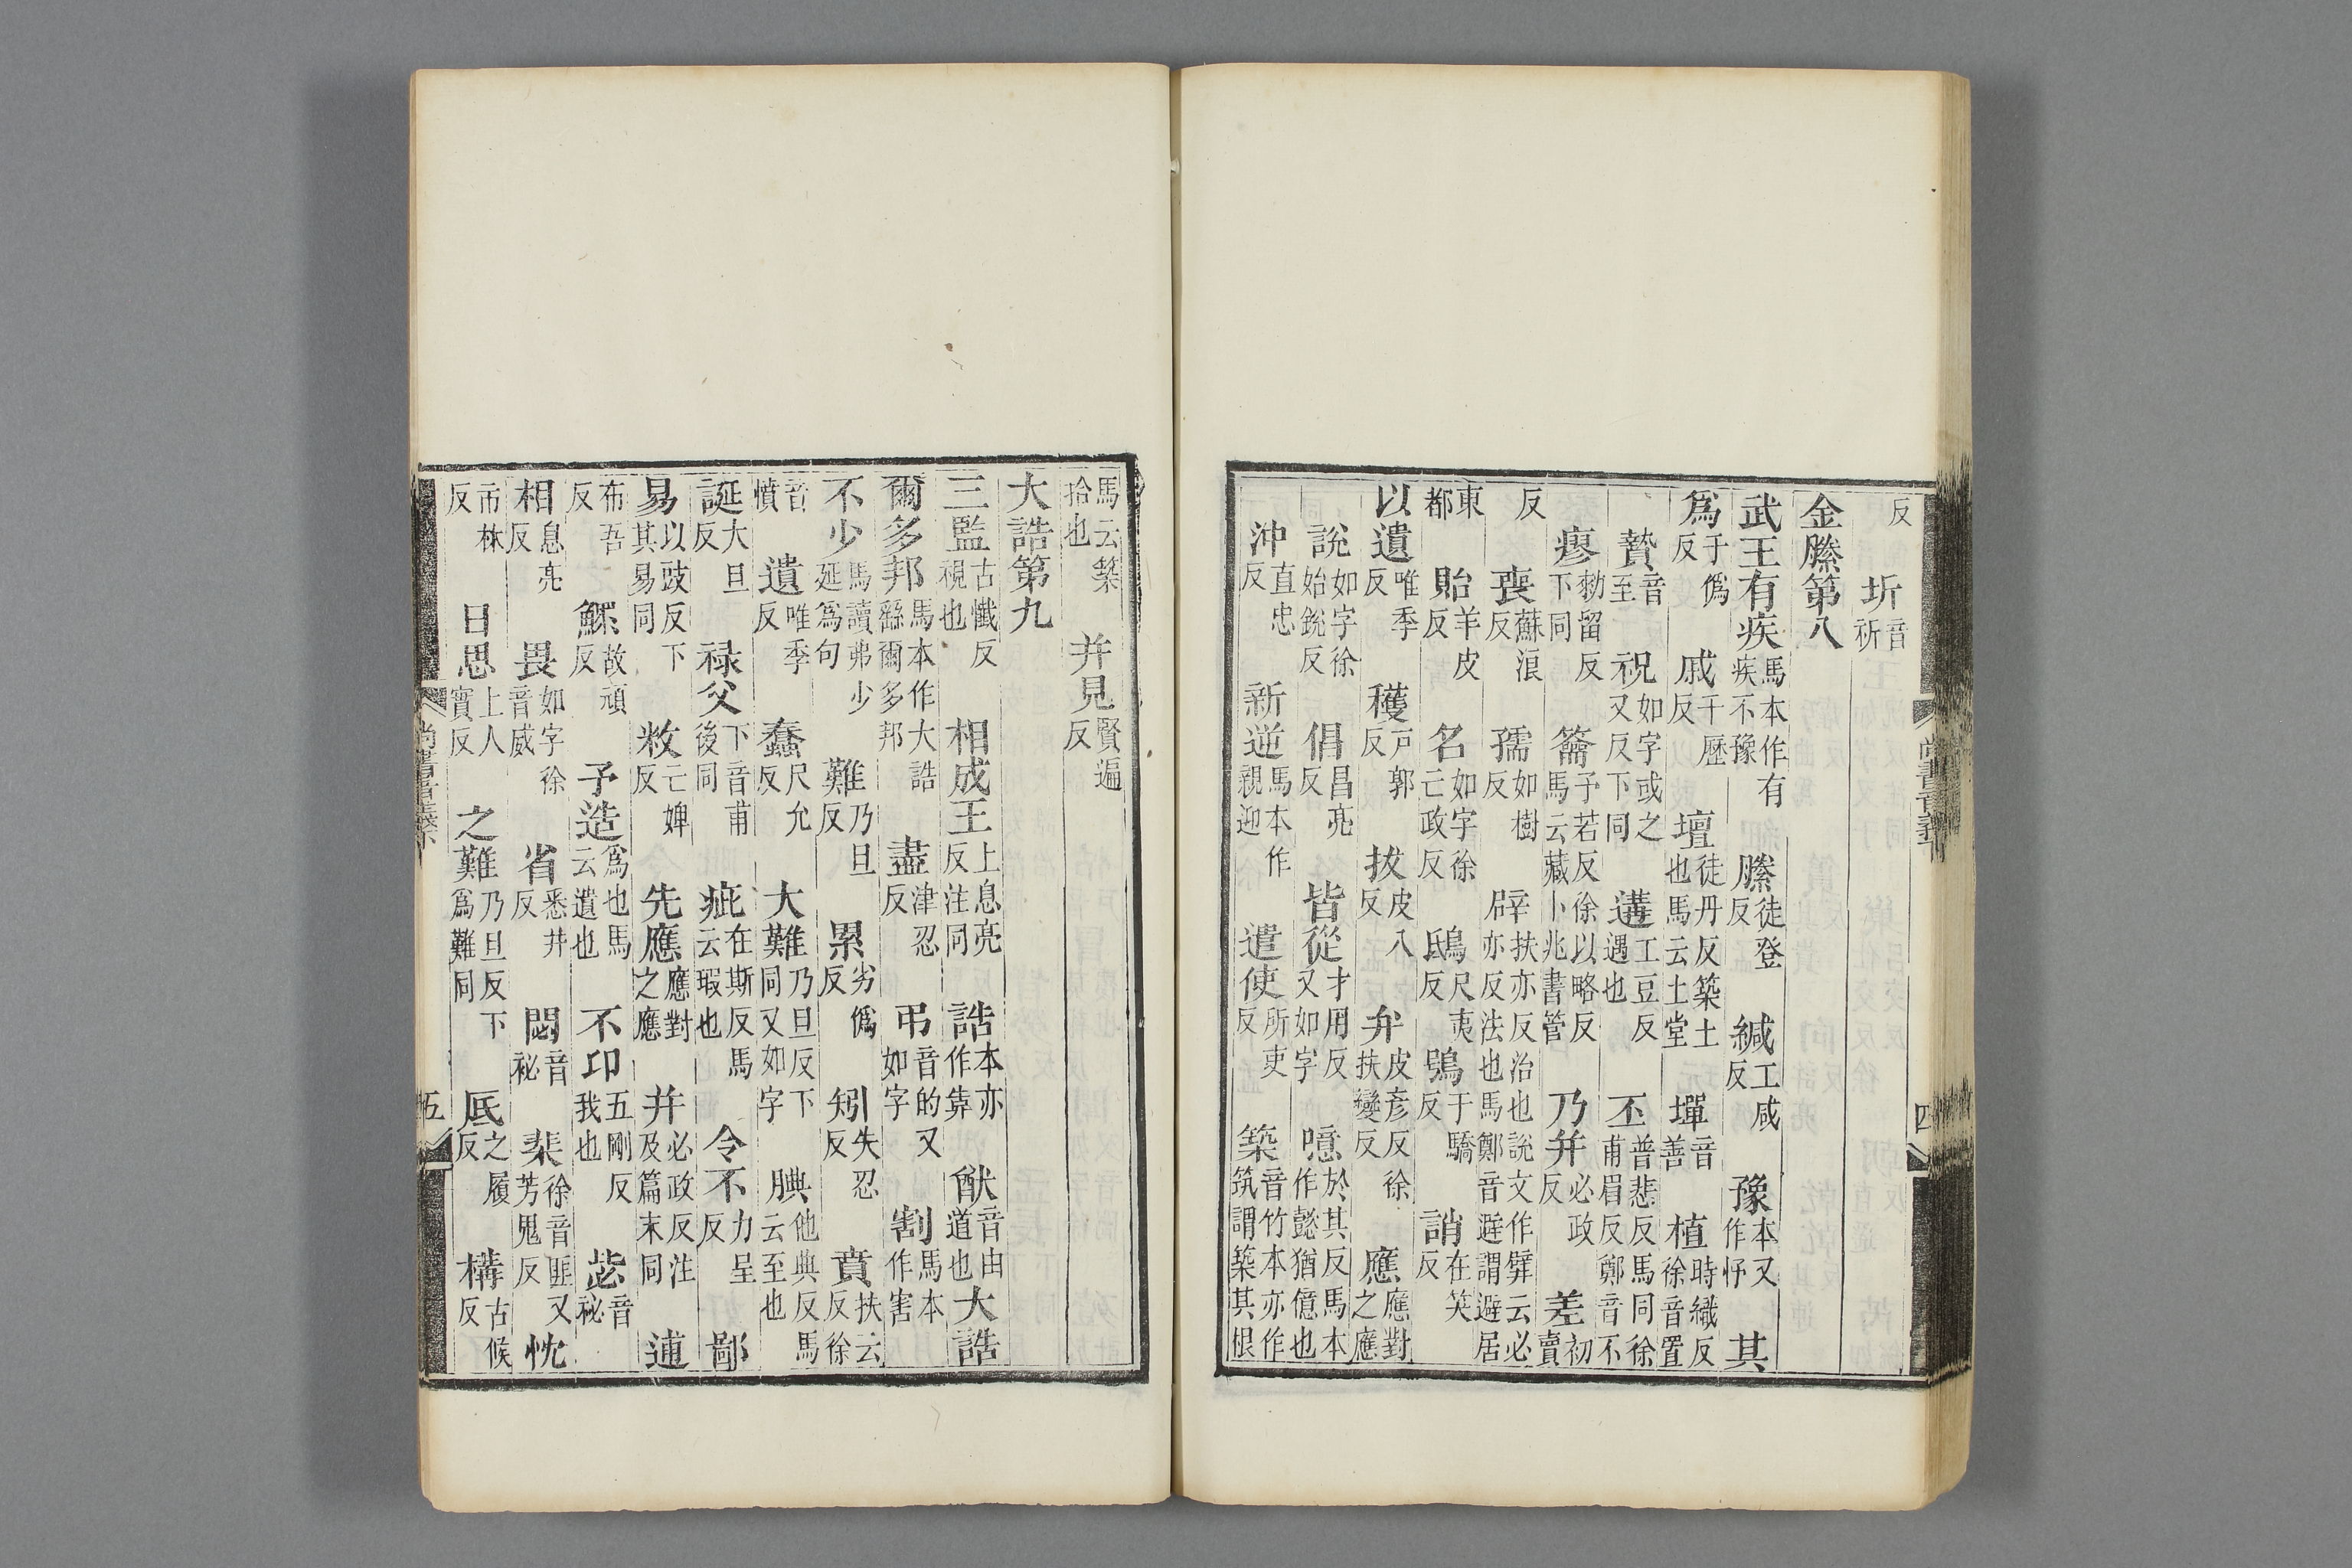 反　圻音祈
金縢第八
武王有疾馬本作有疾不豫　縢徒登反　緘工咸反　豫本又作忬　其
爲于僞反　戚千歷反　壇徒丹反築土也馬云土堂　墠音善　植時織反徐音置
贄音至　祝如字或之又反下同　遘工豆反遇也　丕普悲反馬同徐甫眉反鄭音不
瘳勑留反下同　籥子若反徐以略反馬云藏卜兆書管　乃并必政反　差初賣
反　喪蘇浪反　孺如樹反　辟扶亦反治也說文作壁云必亦反法也馬鄭音避謂避居
東都　貽羊皮反　名如字徐亡政反　鴟尺夷反　鴞于驕反　誚在笑反
以遺唯季反　穫戸郭反　拔皮八反　弁皮彥反徐扶變反　應應對之應
說如字徐始銳反　倡昌亮反　皆從才用反又如字　噫於其反馬本作懿猶億也
沖直忠反　新逆馬本作親迎　遣使所吏反　築音竹本亦作筑謂築其根
尚書音義下　四
馬云築拾也　并見賢遍反
大誥第九
三監古懺反視也　相成王上息亮反注同　誥本亦作靠　猷音由道也　大誥
爾多邦馬本作大誥繇爾多邦　盡津忍反　弔音的又如字　割馬本作害
不少馬讀弗少延爲句　難乃旦反　累劣僞反　矧失忍反　賁扶云反徐
音憤　遺唯季反　蠢尺允反　大難乃旦反下同又如字　腆他典反馬云至也
誕大旦反　祿父下音甫後同　疵在斯反馬云瑕也　令不力呈反　鄙
易以豉反下其易同　敉亡婢反　先應應對之應　并必政反注及篇末同　逋
布吾反　鰥故頑反　予造爲也馬云遺也　不卬五剛反我也　毖音祕
相息亮反　畏如字徐音威　省悉井反　閟音祕　棐徐音匪又芳鬼反　忱
市林反　日思上人實反　之難乃旦反下爲難同　厎之履反　構古候反
尚書音義下　五